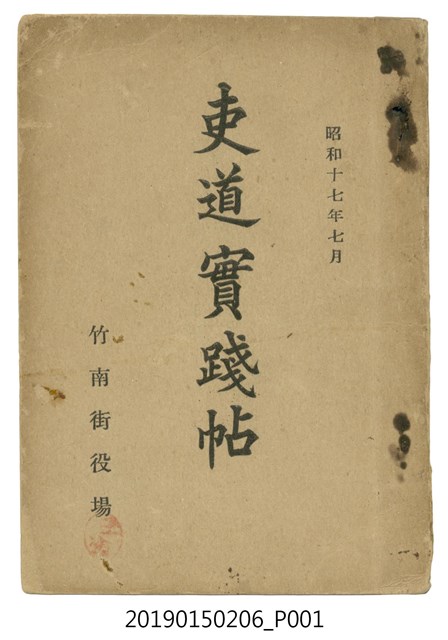 昭和十七年七月
吏道實踐帖
竹南街役場
20190150206_P001